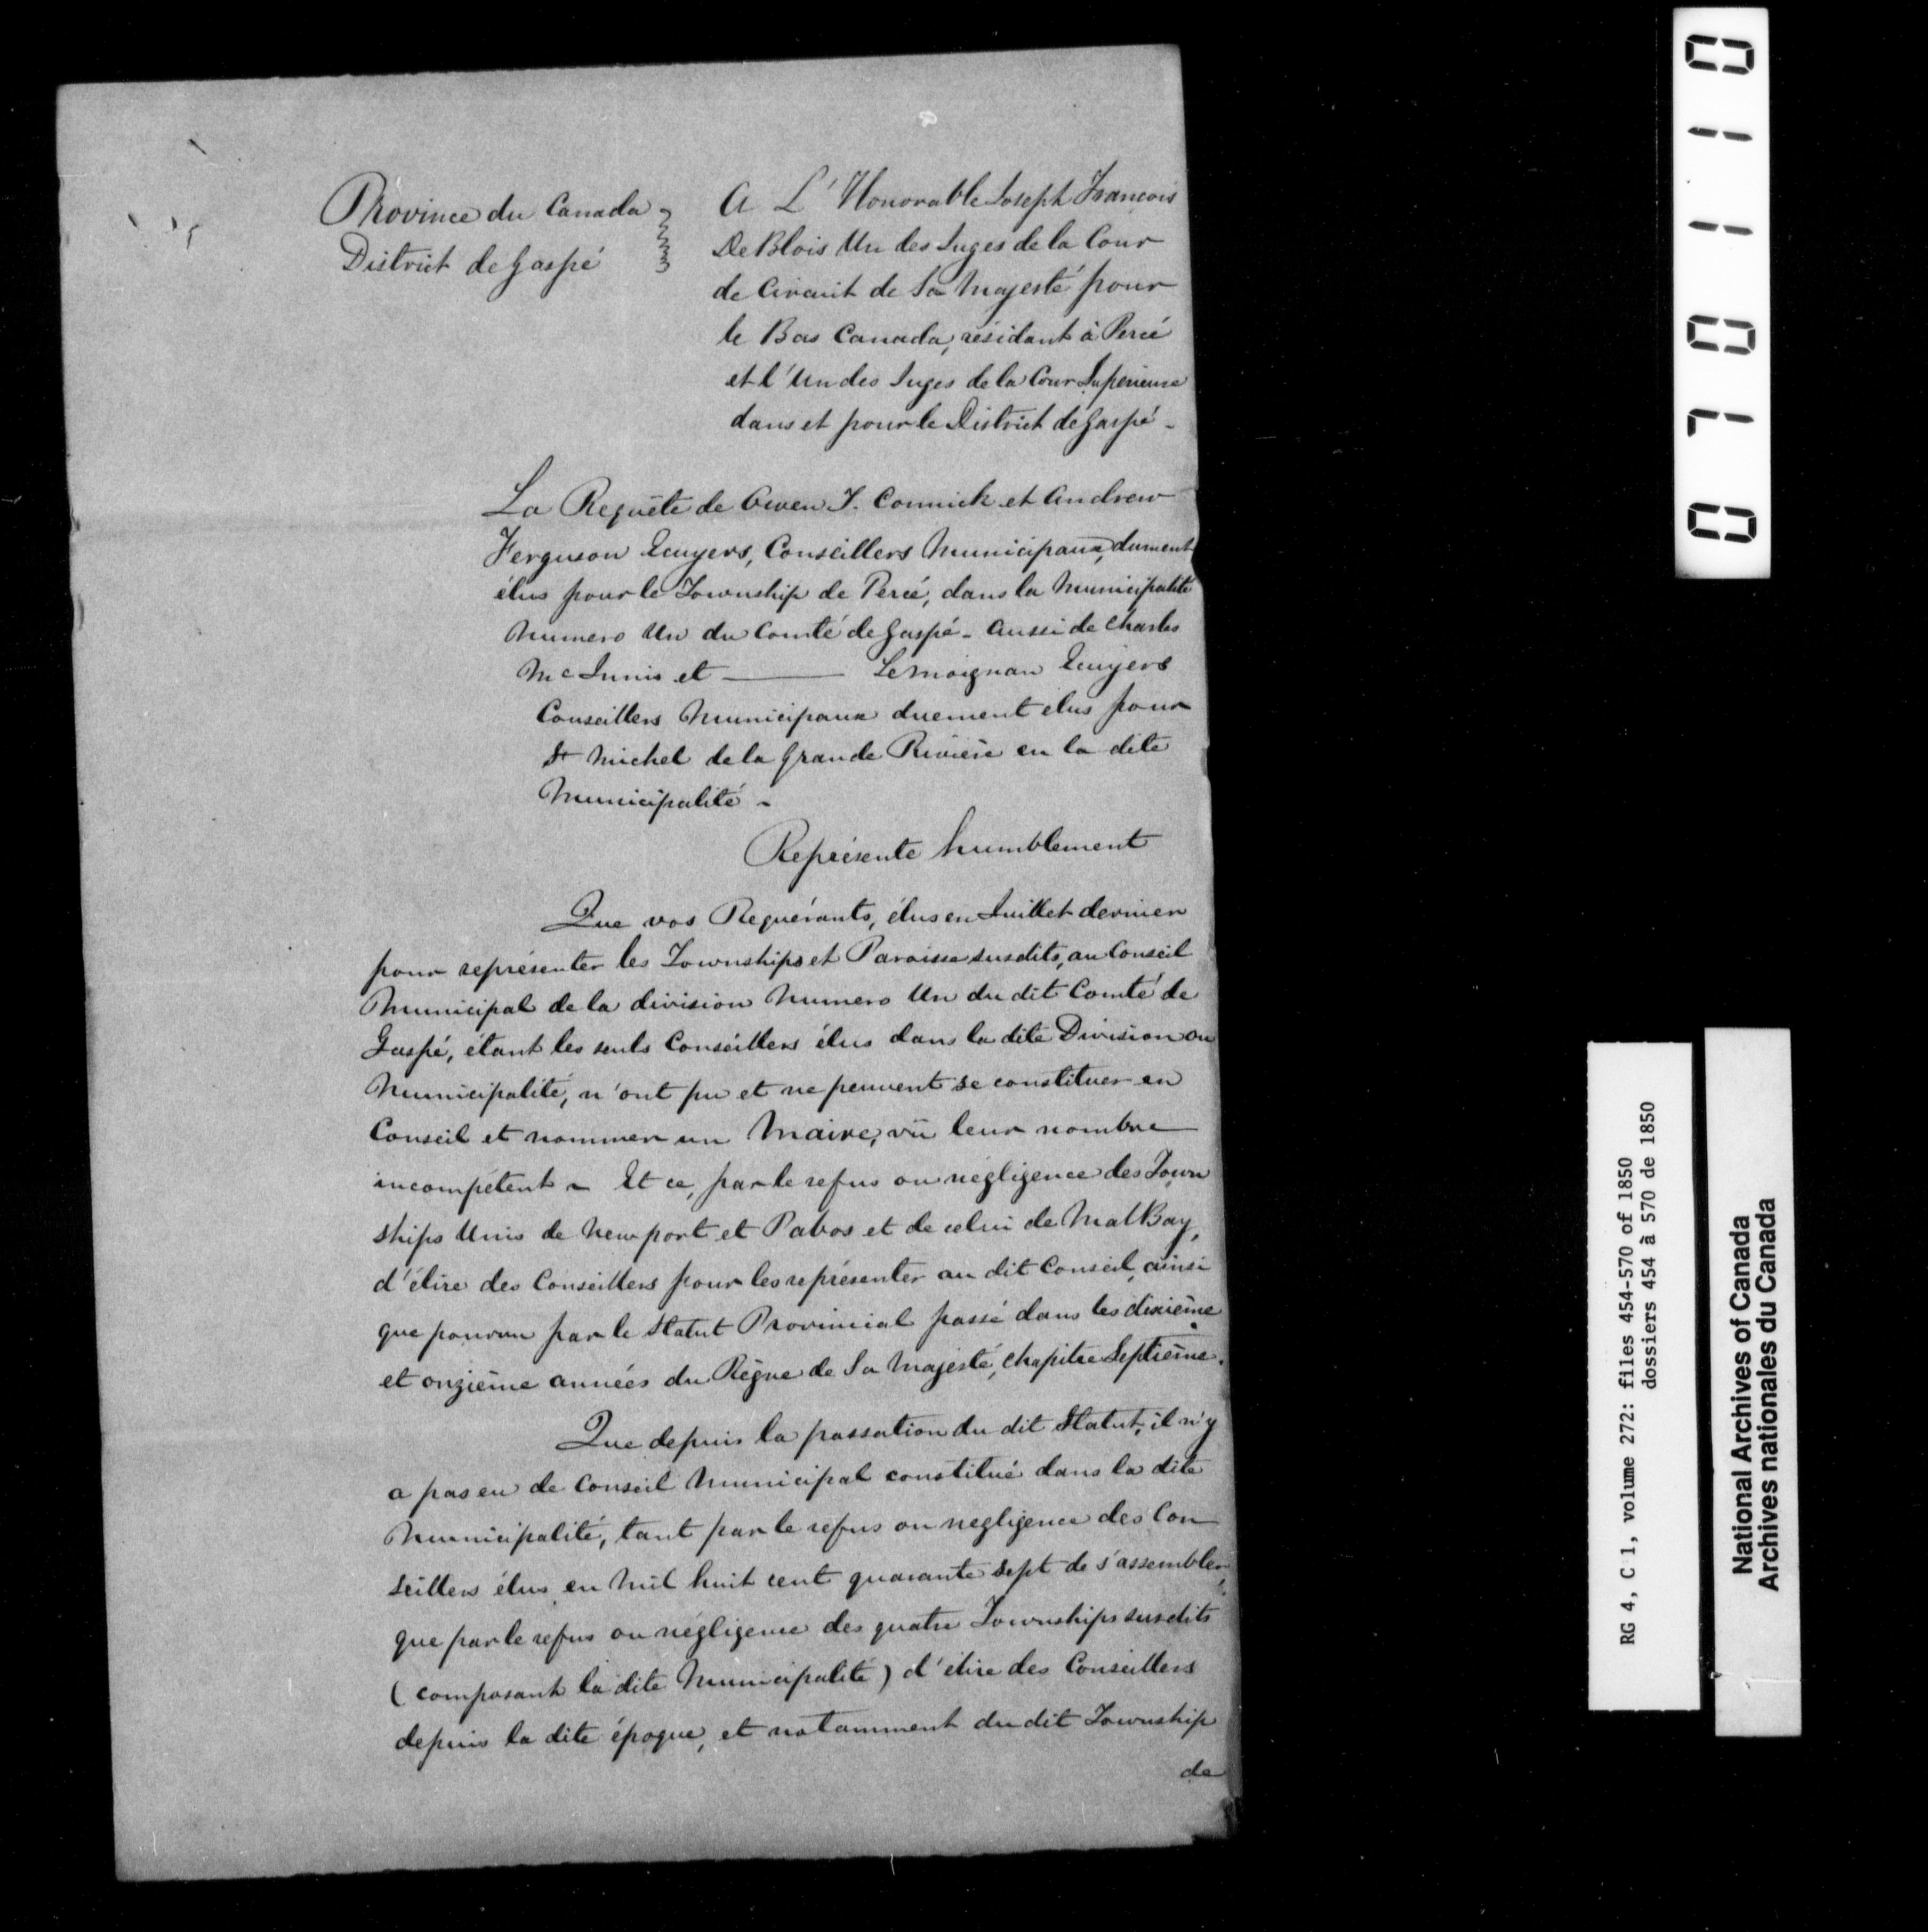 Province du Canada
District de Gaspé
A L'Honorable Joseph François
De Blois Un des Juges de la Cour
de Circuit de Sa Majesté pour
le Bas Canada, résidant à Percé
et l'Un des Juges de la Cour Superieure
dans et pour le District de Gaspé -
La Requête de Owen J. Connick et Andrew
Ferguson Ecuyers, Conseillers Municipaux, dument
élus pour le Township de Percé, dans la Municipalité
Numero Un du Comté de Gaspé - Aussi de Charles
McInnis et ——— Lemoignan Ecuyers
Conseillers Municipaux duement elus pour
St Michel de la Grande Rivière en la dite
Municipalité -
Représente humblement
Que vos Requérants, élus en Juillet dernier
pour représenter les Townships et Paroisse susdits, au Conseil
Municipal de la division Numero Un du dit Comté de
Gaspé, étant les seuls Conseillers élus dans la dite Division ou
Municipalité, n'ont pu et ne peuvent se constituer en
Conseil et nommer un Maire, vû leur nombre
incompétent - Et ce, par le refus ou négligence des Town
ships Unis de Newport et Pabos et de celui de MalBay,
d'élire des Conseillers pour les représenter au dit Conseil, ainsi
que pourvu par le Statut Provincial passé dans les dixième
et onzième années du Règne de Sa Majesté, Chapitre Septième.
Que depuis la passation du dit Statut, il n'y
a pas eu de Conseil Municipal constitué dans la dite
Municipalité, tant par le refus ou negligence des Con
seillers élus en Mil huit cent quarante sept de s'assembler,
que par le refus ou négligence des quatre Townships susdits
(composant la dite Municipalité) d'élire des Conseillers
depuis la dite époque, et notamment du dit Township
de
0701110
RG 4, C 1, volume 272: files 454-570 of 1850
dossiers 454 à 570 de 1850
National Archives of Canada
Archives nationales du Canada